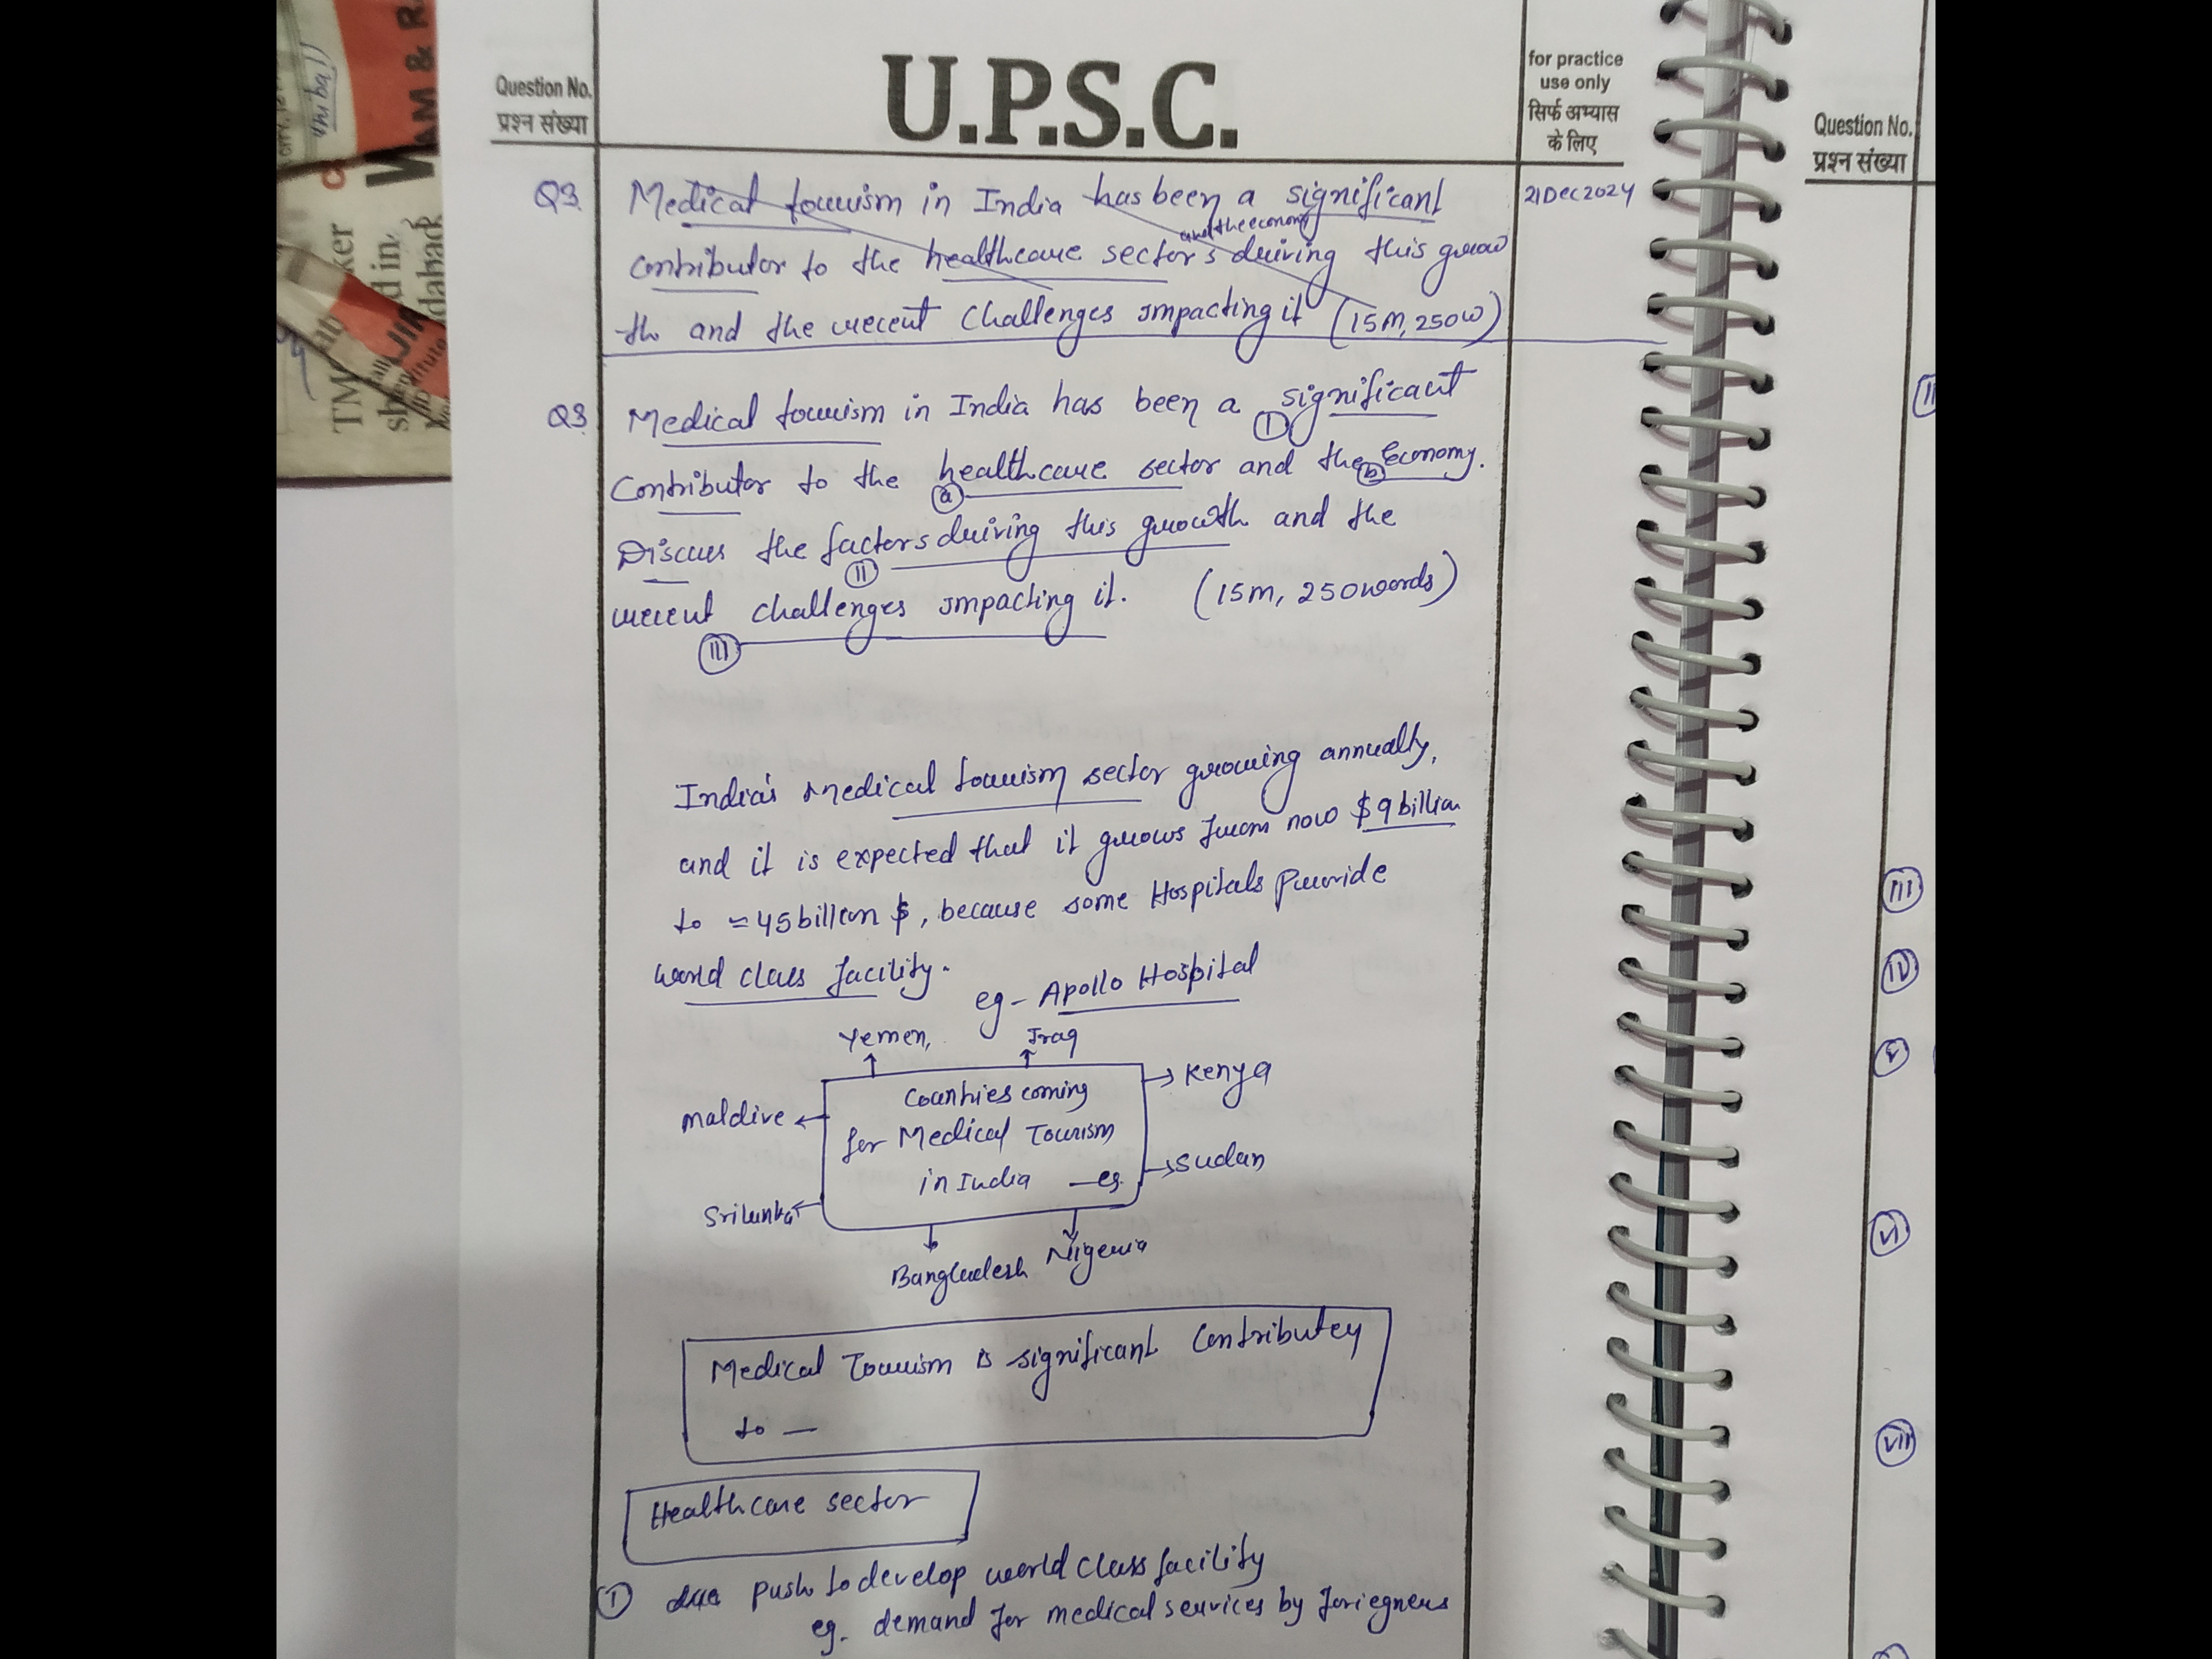 U.P.S.C.
Question No.
प्रश्न संख्या
for practice
use only
सिर्फ अभ्यास
के लिए
Question No.
प्रश्न संख्या
21 Dec 2024
Q3 Medical tourism in India has been a significant
and the economy
contributor to the healthcare sectors driving this grow
th and the recent challenges impacting it (15M, 250W)
Q3 Medical tourism in India has been a significant
I
contributor to the healthcare sector and the Economy.
a b
Discuss the factors driving this growth and the
II
recent challenges impacting it. (15m, 250words)
III
India's medical tourism sector growing annually,
and it is expected that it grows from now $9 billion
to ≈ 45 billion $, because some Hospitals Provide
world class facility.
eg - Apollo Hospital
Yemen, Iraq
Kenya
Countries coming
Maldive
for Medical Tourism
Sudan
in India - eg.
Srilanka
Bangladesh Nigeria
Medical Tourism is significant Contributey
to -
Healthcare sector
I due push to develop world class facility
eg. demand for medical services by foriegners
III
IV
V
VI
VII
TM